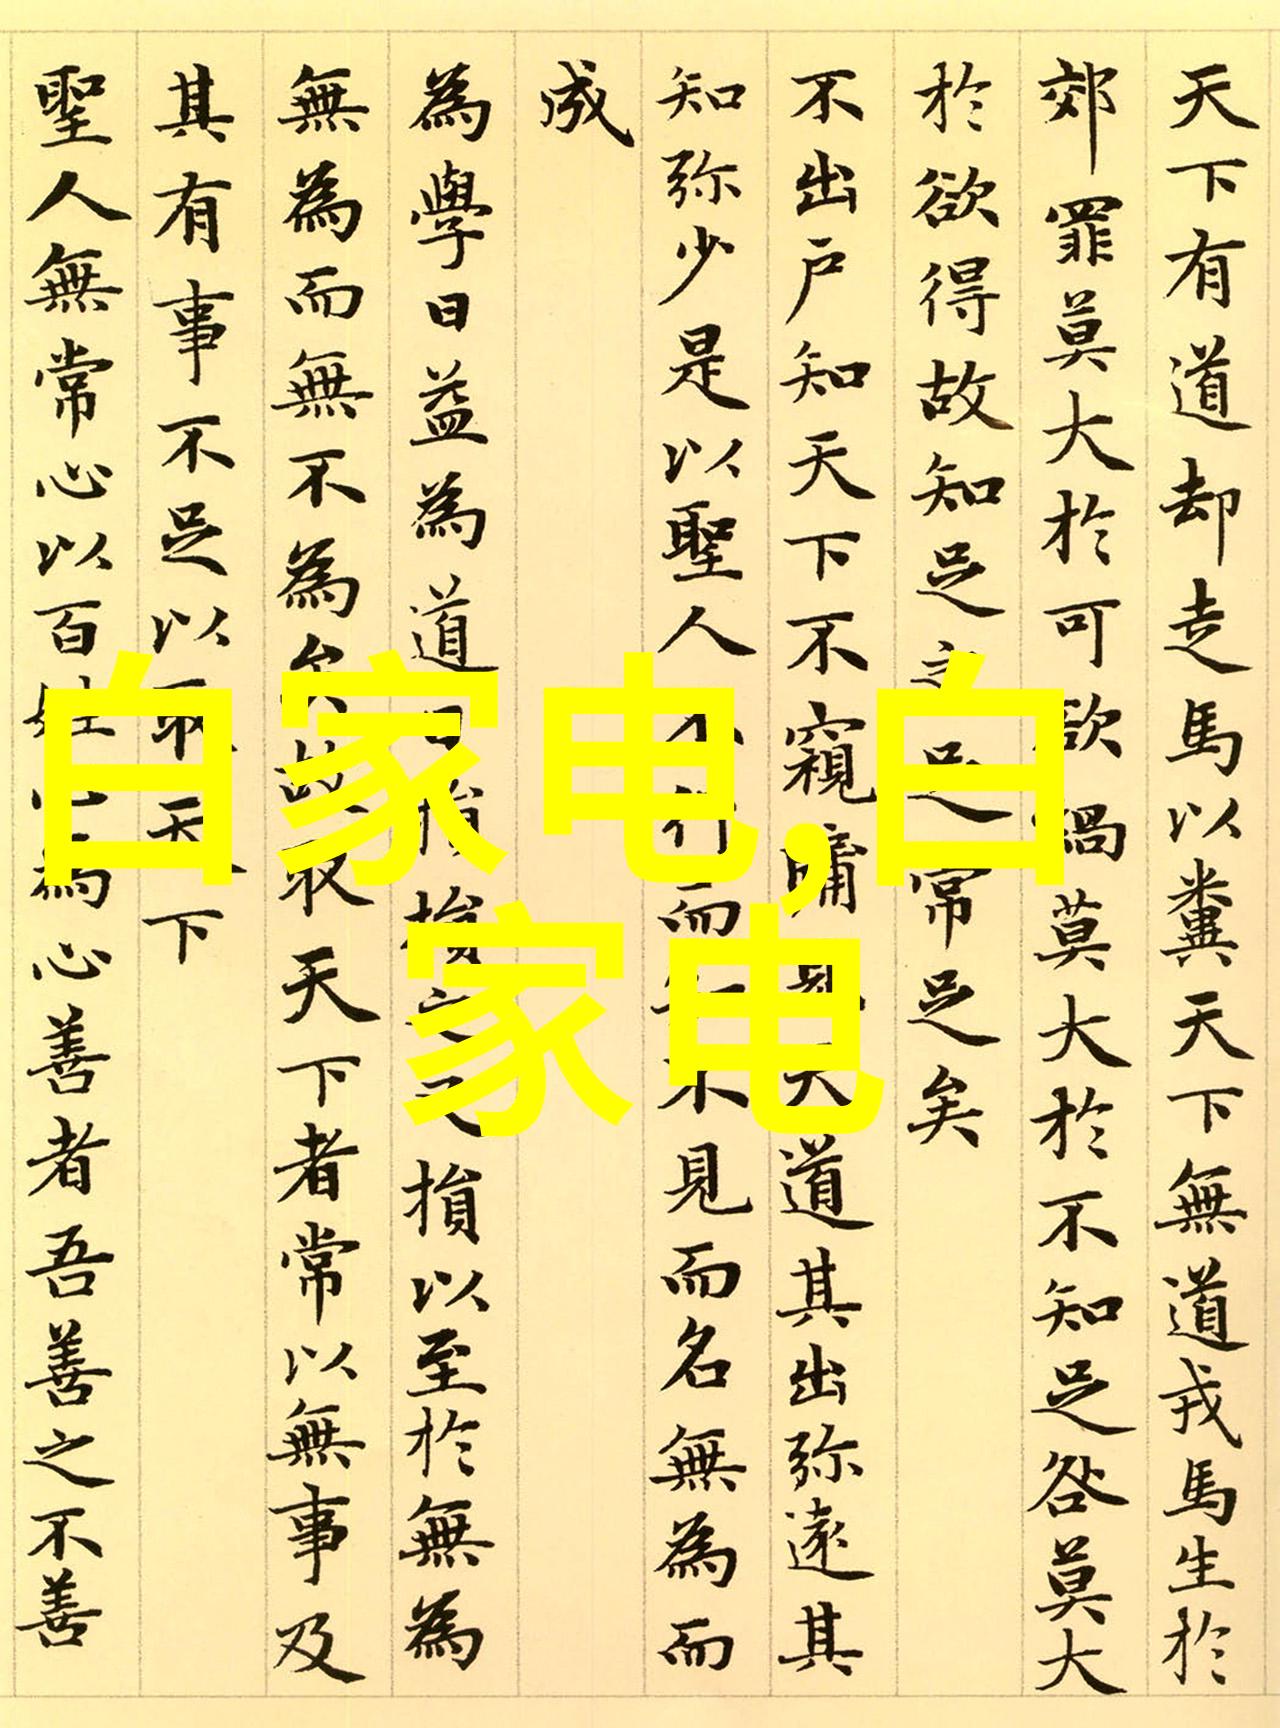 天下有道却走馬以糞天下無道戎馬生於
郊罪莫大於可欲禍莫大於不知足咎莫大
於欲得故知足之足常足矣
不出户知天下不窺牖見天道其出弥遠其
知弥少是以聖人不行而知不見而名無為而
成
為學日益為道日損損之又損以至於無為
無為而無不為矣故取天下者常以無事及
其有事不足以取天下
聖人無常心以百姓心為心善者吾善之不善
白家电,白
家电